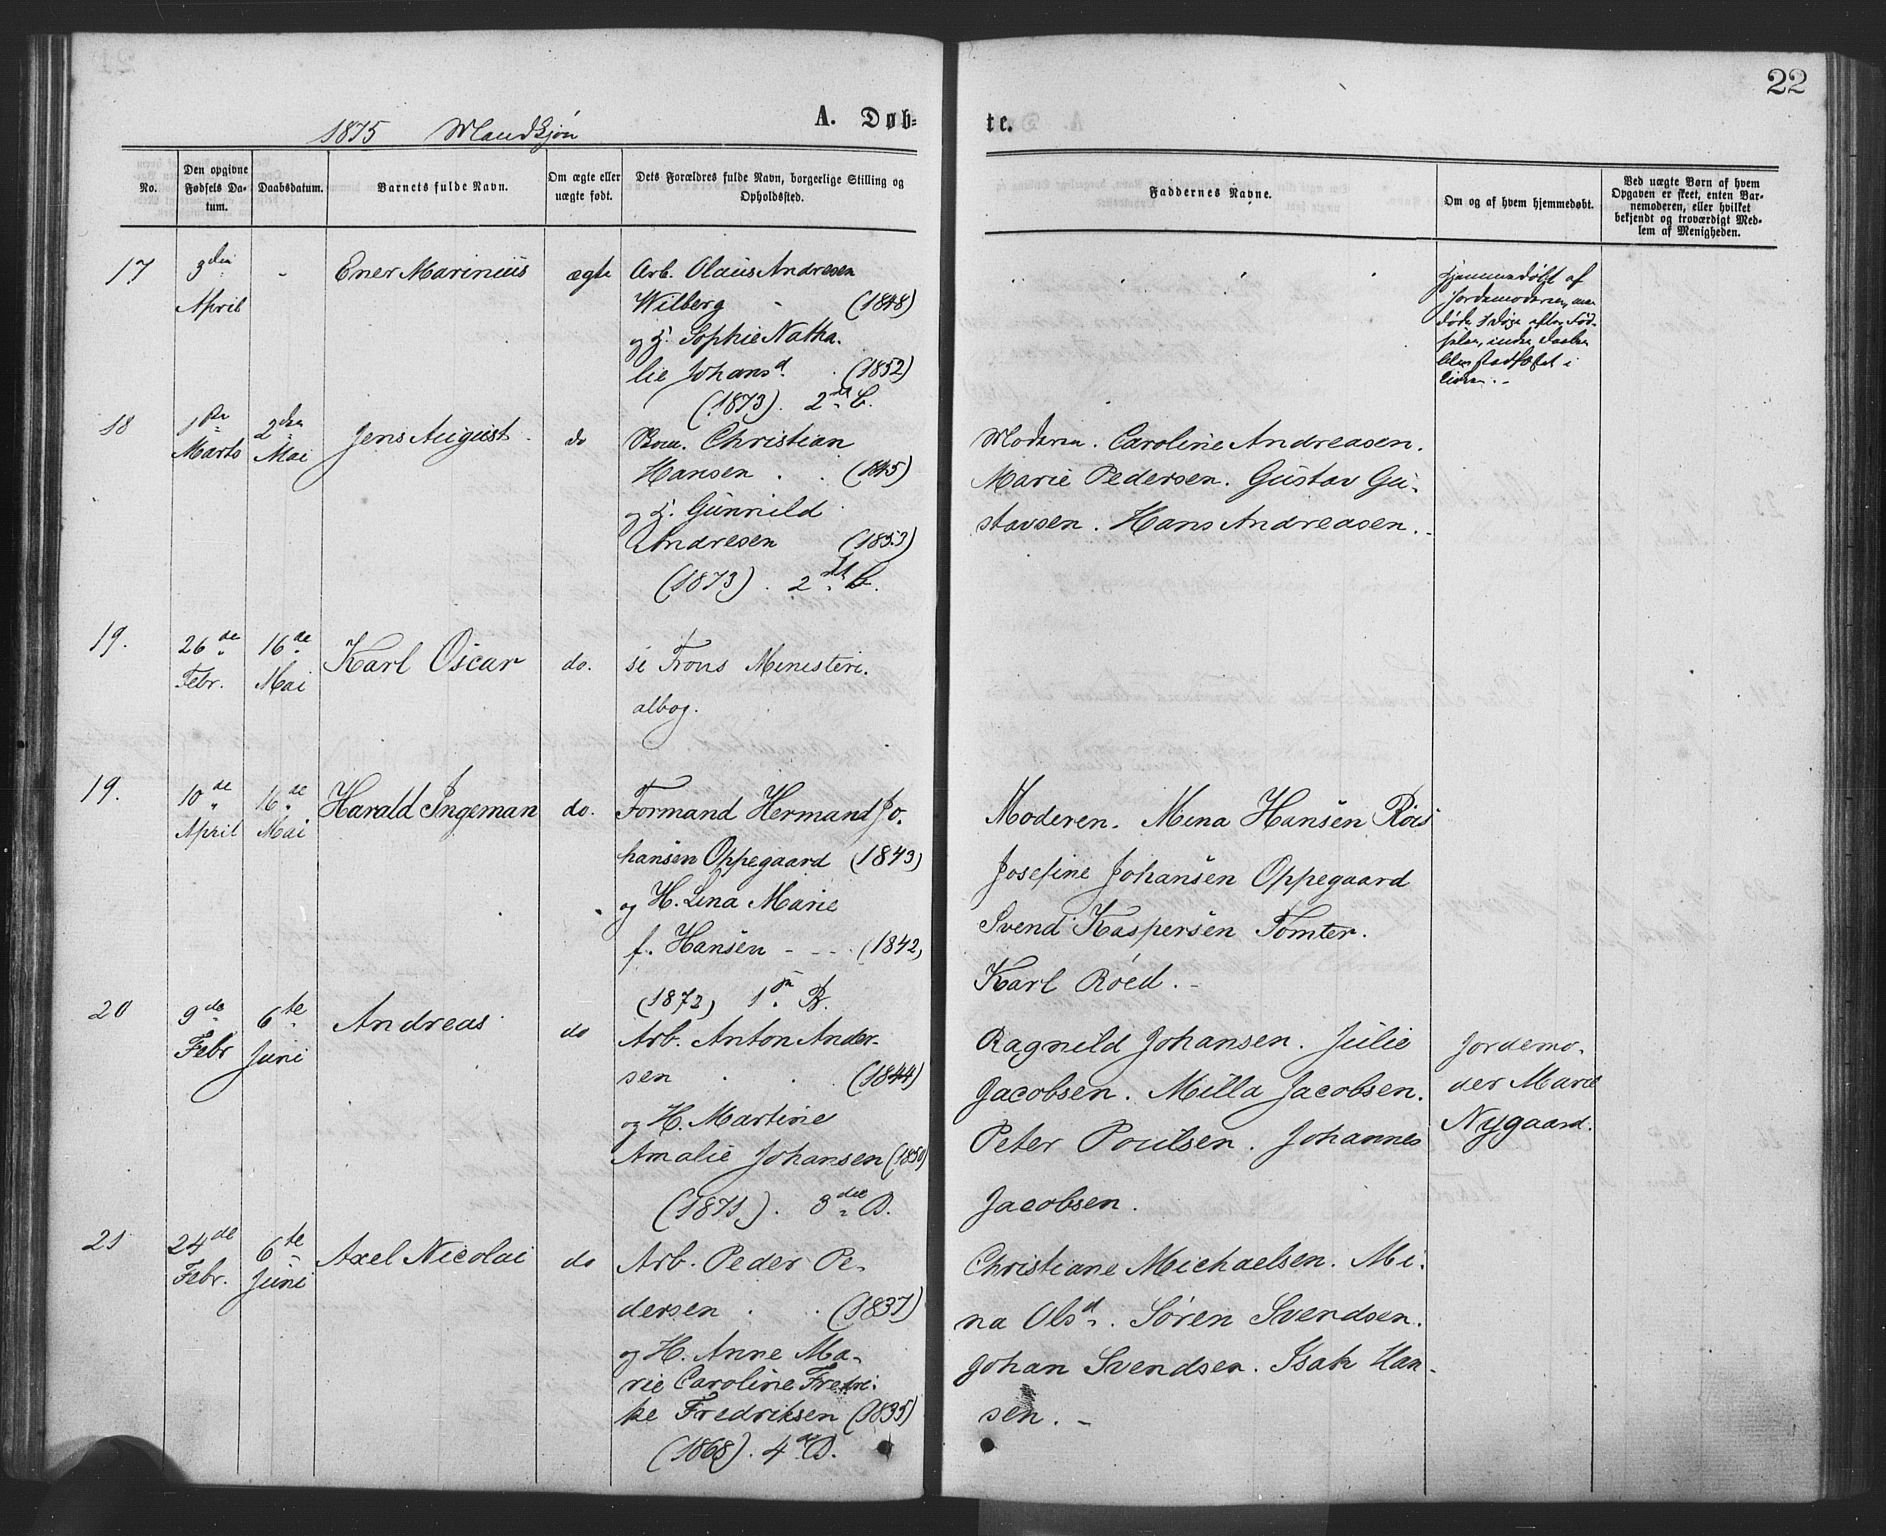 22
1875 Mandkjøn
A. Døb-
te.
No.
Den opgivne
Fødsels Da-
tum.
Daabsdatum.
Barnets fulde Navn.
Om ægte eller
uægte født.
Dets Forældres fulde Navn, borgerlige Stilling og
Opholdssted.
Faddernes Navne.
Om og af hvem hjemmedøbt.
Ved uægte Børn af hvem
Opgaven er skeet, enten Bar-
nemoderen, eller hvilket
bekjendt og troværdigt Med-
lem af Menigheden.
17
3den
April
-
Ener Marinius
ægte
Arb. Olaus Andresen
Wilberg - (1848)
og H. Sophie Natha.
lie Johansd. . (1852)
(1873). 2det B.
Hjemmedøbt af
Jordemoderen, men
døde
efter Fød-
selen, inden Daaben
blev stadfæstet i
18
1ste
Marts
2den
Mai
Jens August
do
Christian
Hansen . . (1845)
og H. Gunnild
Andresen (1853)
(1873). 2det B.
Moderen. Caroline Andreasen.
Marie Pedersen. Gustav Gu-
stavsen. Hans Andreasen. -
19.
26de
Febr.
16de
Mai
Karl Oscar
do.
se Frons Ministeri.
albog.
19.
10de
April
16de
Mai
Harald Ingeman
do.
Formand Hermand Jo.
hansen Oppegaard (1843)
og H. Lina Marie
f. Hansen - - - (1842)
(1872) 1ste B.
Moderen. Mina Hansen Röis
Josefine Johansen Oppegaard
Svend Kaspersen Tomter.
Karl Röed. -
20
9de
Febr
6te
Juni
Andreas
do
Arb. Anton Ander-
sen . . (1844)
og H. Martine
Amalie Johansen (1850)
(1871). 3die B.
Ragnild Johansen. Julie
Jacobsen. Milla Jacobsen.
Peter Poulsen. Johannes
Jacobsen.
Jordemo-
der Marie
Nygaard.
21
24de
Febr.
6te
Juni
Axel Nicolai
do
Arb. Peder Pe-
dersen . . (1837)
og H. Anne Ma-
rie Caroline Fredri-
ke Fredriksen (1835)
(1868). 4de B.
Christiane Michaelsen. Mi-
na Olsd. Søren Svendsen.
Johan Svendsen. Isak Han-
sen. -